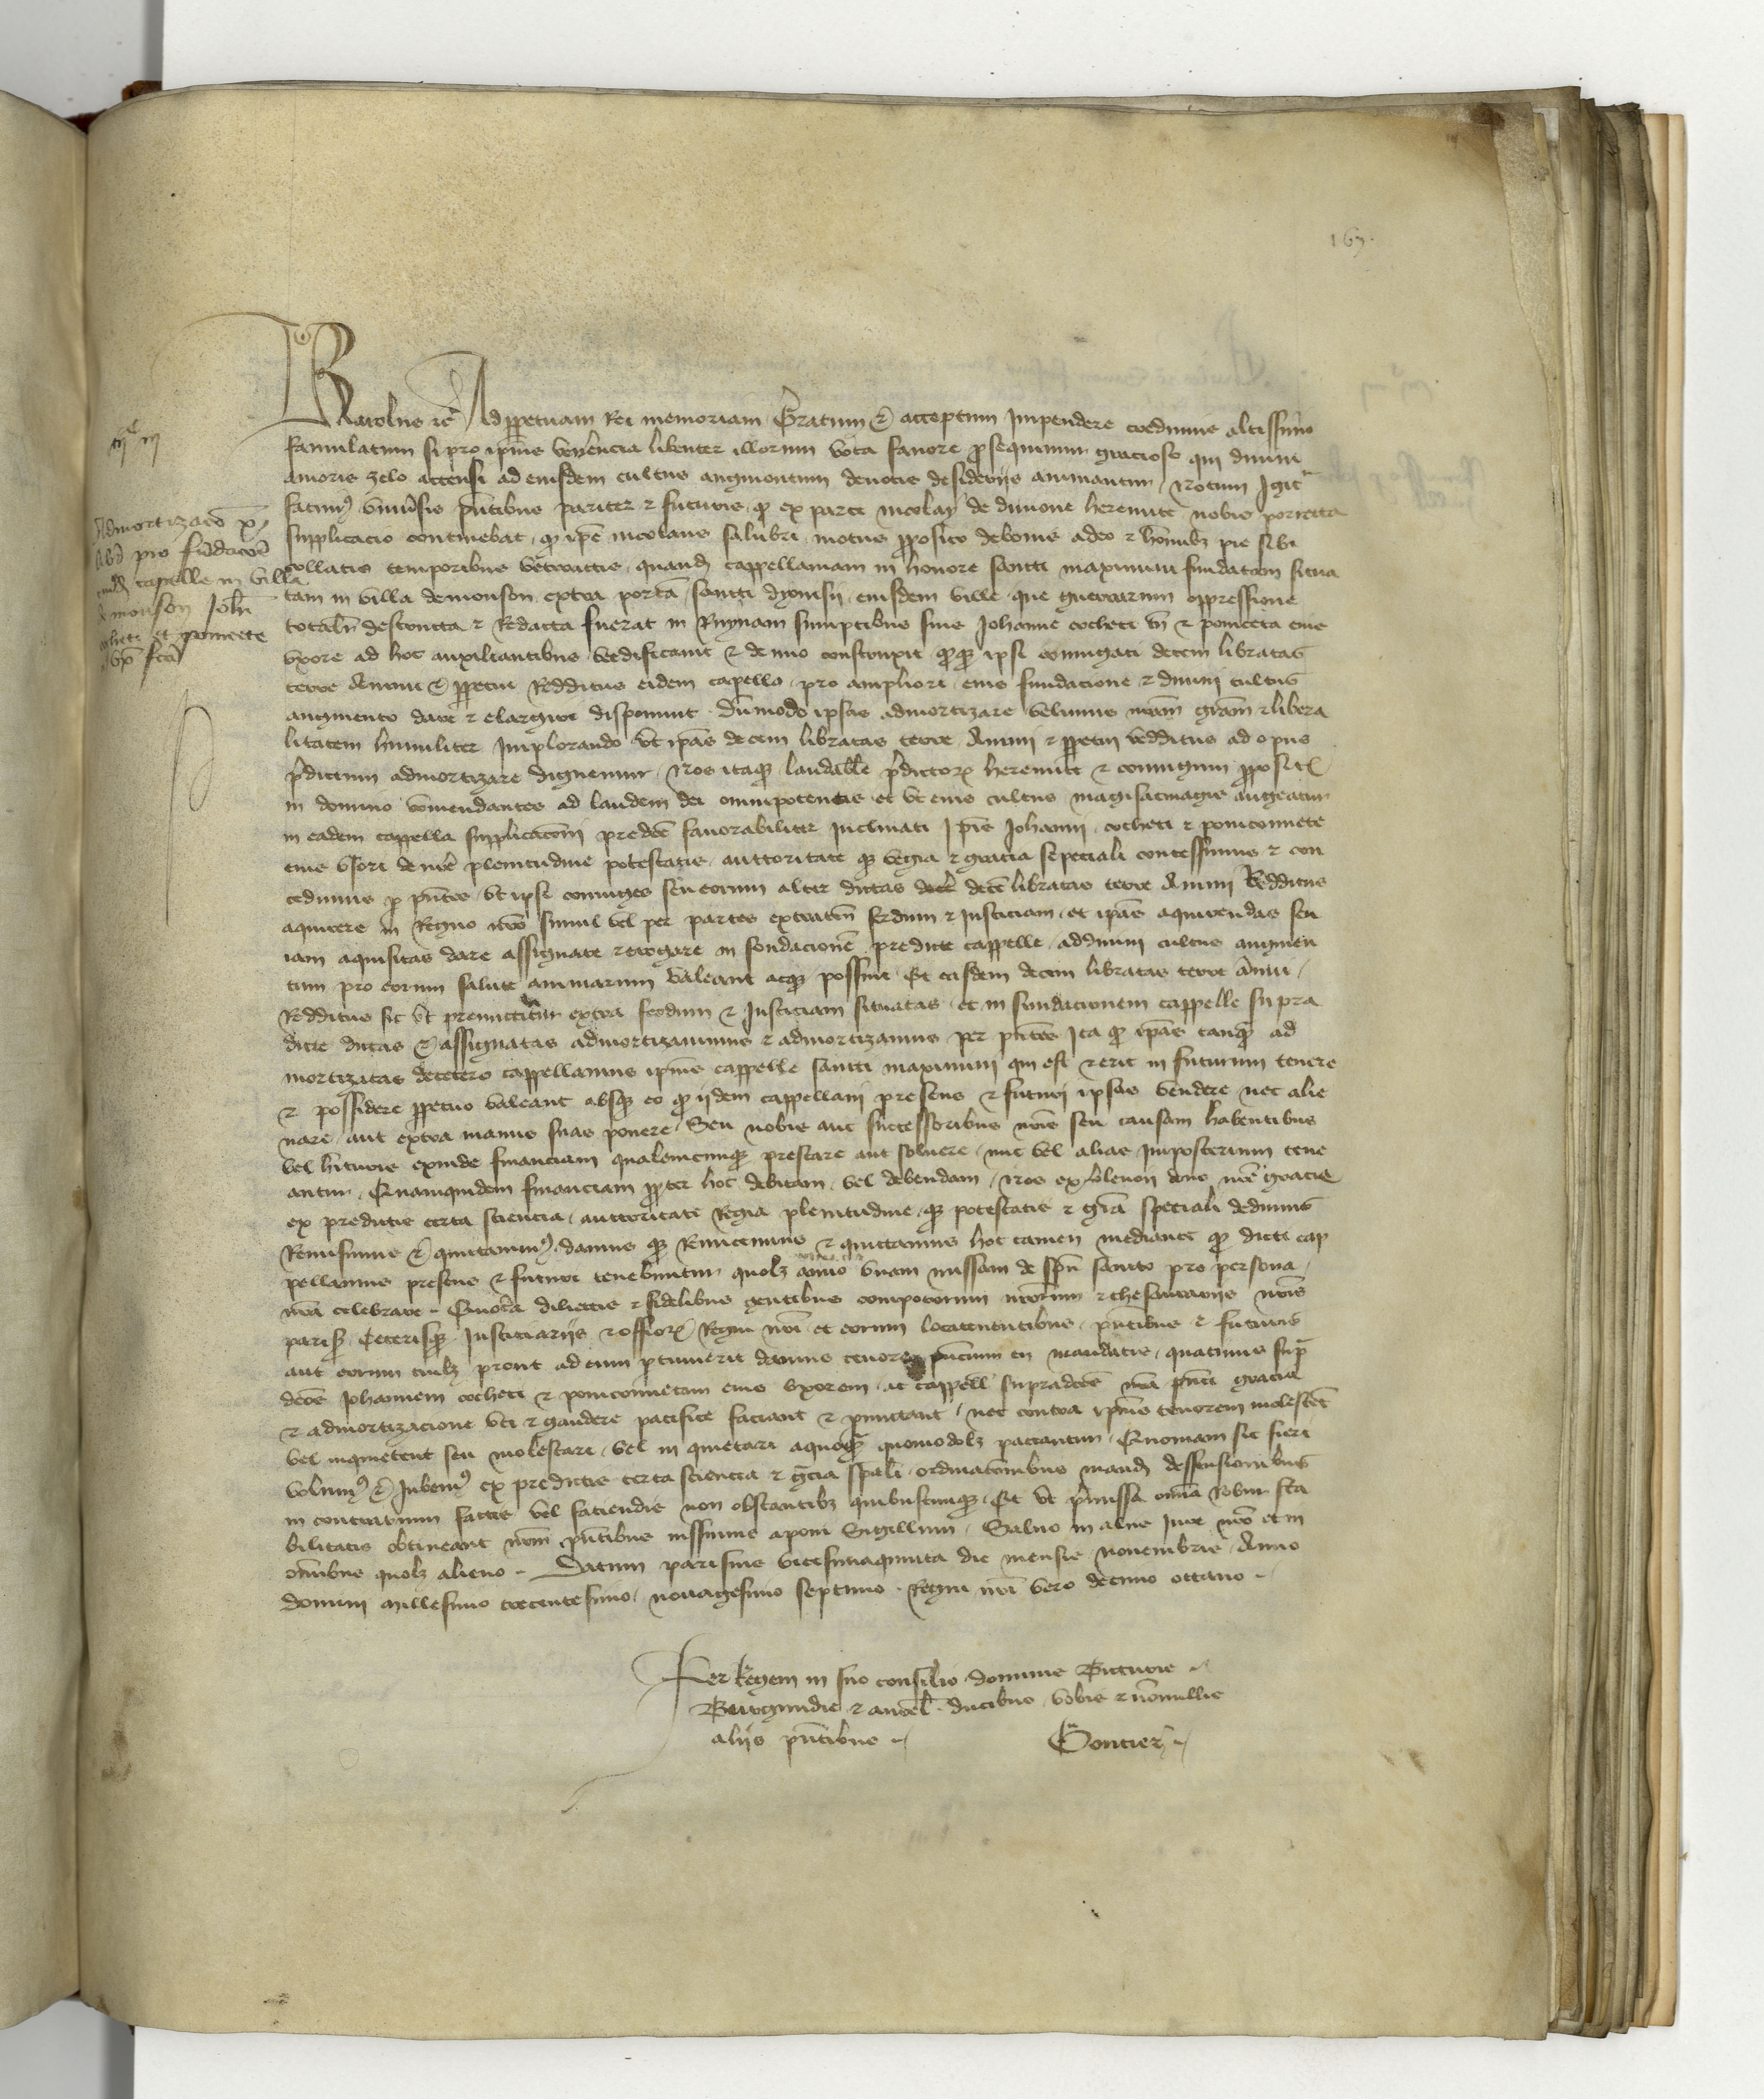 167.
Karolus etc̃ Ad p̱petuam Rei memoriam Gratum et acceptum Impendere credimus altissimo
famulatum si pro ip̃ius reuerencia libenter illorum vota fauore ꝓsequimur gracioso qui diuini
Amoris zelo accensi ad eiusdem cultus augmentum deuotis desiderijs animantur / Notum Igitr̃
facimꝰ vniu̓sis pñtibus pariter ⁊ futuris / ꝙ ex parte nicolay de diuione heremite nobis porrecta
supplicacio continebat / ꝙ ip̃e nicolaus salubri motus ꝓposito de bonis a deo ⁊ hõnibꝫ pie sibi
collatis temporibus retroactis / quandã cappellaniam in honore sancti maximini fundatam situa
tam in villa de monson extra portã sancti dyonisij eiusdem ville que guerrarum oppressione
totalit̃ destructa ⁊ Redacta fuerat in Ruynam sumptibus suis Johanne cocheti vñ ⁊ ponceta eius
vxore ad hoc auxiliantibus reedificauit ⁊ de nouo construxit ꝙꝗ ipsi coniugati decem libratas
terre Annui et p̱petui Redditus eidem capelle / pro ampliori eius fundacione ⁊ diuini cultus
augmento dare ⁊ elargire disponunt / Dũmodo ipsas admortizare velimus nr̃am grãm ⁊ libera
litatem humiliter Implorando vt ip̃as decem libratas terre Annui ⁊ p̱petui redditus ad opus
p̃dictum admortizare dignemur / Nos itaqꝫ laudabile p̃dictorꝝ heremite ⁊ coniugum ꝓpositũ
in domino commendantes ad laudem dei omnipotentis et vt eius cultus magis ac magis augeatur
in eadem cappella supplicacioni predce fauorabiliter Inclinati Ip̃is Johanni cocheti ⁊ poncionnete
eius vxori de nr̃e plenitudine potestatis / auctoritate qꝫ regia ⁊ gracia sepeciali concessimus ⁊ con
cedimus p̱ pñtes / vt ipsi coniuges seu eorum alter dictas decẽ libratas terre Annui Redditus
aquirere in Regno nr̃o simul vel per partes extra tñ feodum ⁊ Justiciam / et ip̃as aquirendas seu
iam aquisitas dare assignare ⁊ erogare in fondacionẽ predicte cappelle / ad diuini cultus augmen
tum pro eorum salute animarum valeant atqꝫ possint Et easdem decem libratas terre ãnui /
Redditus sic vt premittitur extra feodum ⁊ Justiciam situatas / et in fundacionem cappelle supra
dicte datas et assignatas admortizauimus ⁊ admortizamus per pñtes Ita ꝙ ip̃as tanqꝫ̃ ad
mortizatas decetero cappellanus ip̃ius cappelle sancti maximini qui est ⁊ erit in futurum tenere
⁊ possidere p̱petuo valeant absqꝫ eo ꝙ ijdem cappellani presens ⁊ futuri ipsas vendere nec alie
nare / aut extra manus suas ponere / Seu nobis aut successoribus nr̃is seu causam habentibus
vel hituris exinde financiam qualemcunqꝫ prestare aut soluere / nunc vel alias Imposterum tene
antur / Quamquidem financiam ꝓpter hoc debitam / vel debendam / Nos ex vberiori dono nr̃e gracie
ex predictis certa sciencia / auctoritate Regia plenitudine qꝫ potestatis ⁊ grã speciali dedimus
Remisimus et quittauimꝰ / damus qꝫ Remittimus ⁊ quittamus hoc tamen mediante ꝙ dicte cap
pellanus presens ⁊ futuri tenebuntur quolꝫ anno vnam missam de spũ sancto pro persona /
nr̃a celebrare / Quocirca dilectis ⁊ fidelibus gentibus compotorum nr̃orum ⁊ thesaurarijs nr̃is
parisꝫ Ceterisqꝫ Justiciarijs ⁊ offic̃orꝝ Regni nr̃i et eorum locatenentibus / pñtibus ⁊ futuris
aut eorum cuilꝫ prout ad eum p̱tinuerit damus tenore pñcium in mandatis / quatinus sup̃
dc̃os Johannem cocheti ⁊ poncionnetam eius vxorem / ac cappell̃ supradc̃os nr̃a pñti gracia
⁊ admortizacione vti ⁊ gaudere pacifice faciant ⁊ p̱mittant / nec contra ip̃ius tenorem molestẽt
vel inquietent seu molestari / vel in quietari a quoqꝫ̃ quomodolꝫ paciantur / Quoniam sic fieri
volumꝰ et Jubemꝰ ex predictis certa sciencia ⁊ gr̃cia sp̃ali / ordinacõnibus mandꝭ deffensionibus
in contrarium factis vel faciendis non obstantibꝫ quibuscunqꝫ / Et vt p̃missa om̃ia robur sta
bilitatis obtineant nr̃m pñtibus iussimus aponi Sigillum / Saluo in alijs Jure nr̃o et in
om̃ibus quolꝫ alieno / Datum parisius vicesimaquinta die mensis nouembris / Anno
domini millesimo trecentesimo / nonagesimo septimo / Regni nr̃i vero decimo octauo /
Per Regem in suo consilio dominis Bituris
Burgundie ⁊ aurel̃ ducibus / vobis ⁊ nõnullis
alijs pñtibus /
Gontier /
Admortizacõ x
libꝝ pro fũdacõe
cuiusdꝫ capelle in villa
de monson Joh̃i
cocheti et poncete
eius vx̃ fc̃a